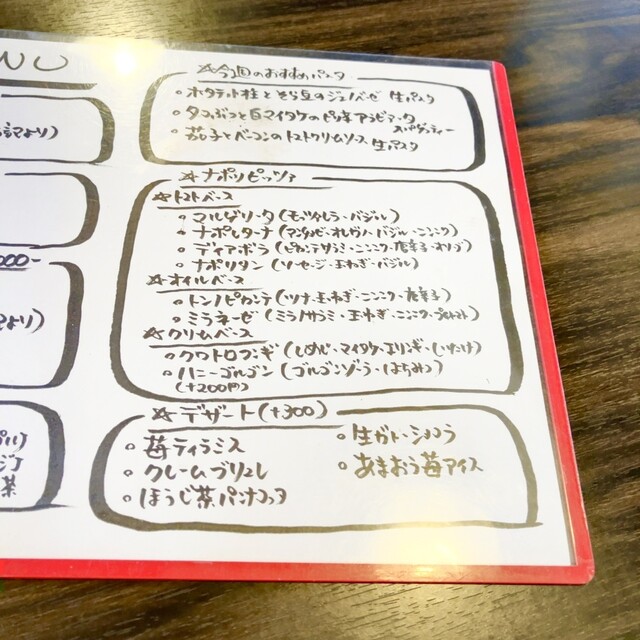 NU
☆今週のおすすめパスタ
・ホタテ貝柱とそら豆のジェノベーゼ 生パスタ
・タコぶつと白マイタケのピリ辛アラビアータ スパゲッティー
・茄子とベーコンのトマトクリームソース 生パスタ
☆ナポリピッツァ
☆トマトベース
・マルゲリータ(モッツァレラ・バジル)
・ナポレターナ(アンチョビ・オレガノ・バジル・ニンニク)
・ディアボラ(ピカンテサラミ・ニンニク・唐辛子・オリーブ)
・ナポリタン(ソーセージ・玉ねぎ・バジル)
☆オイルベース
・トンノピカンテ(ツナ・玉ねぎ・ニンニク・唐辛子)
・ミラネーゼ(ミラノサラミ・玉ねぎ・ニンニク・プチトマト)
☆クリームベース
・クワトロフンギ(しめじ・マイタケ・エリンギ・しいたけ)
・ハニーゴルゴン(ゴルゴンゾーラ・はちみつ)
(+200円)
☆デザート(+300)
・苺ティラミス
・クレームブリュレ
・ほうじ茶パンナコッタ
・生ガトーショコラ
・あまおう苺アイス
より)
000-
より)
茶